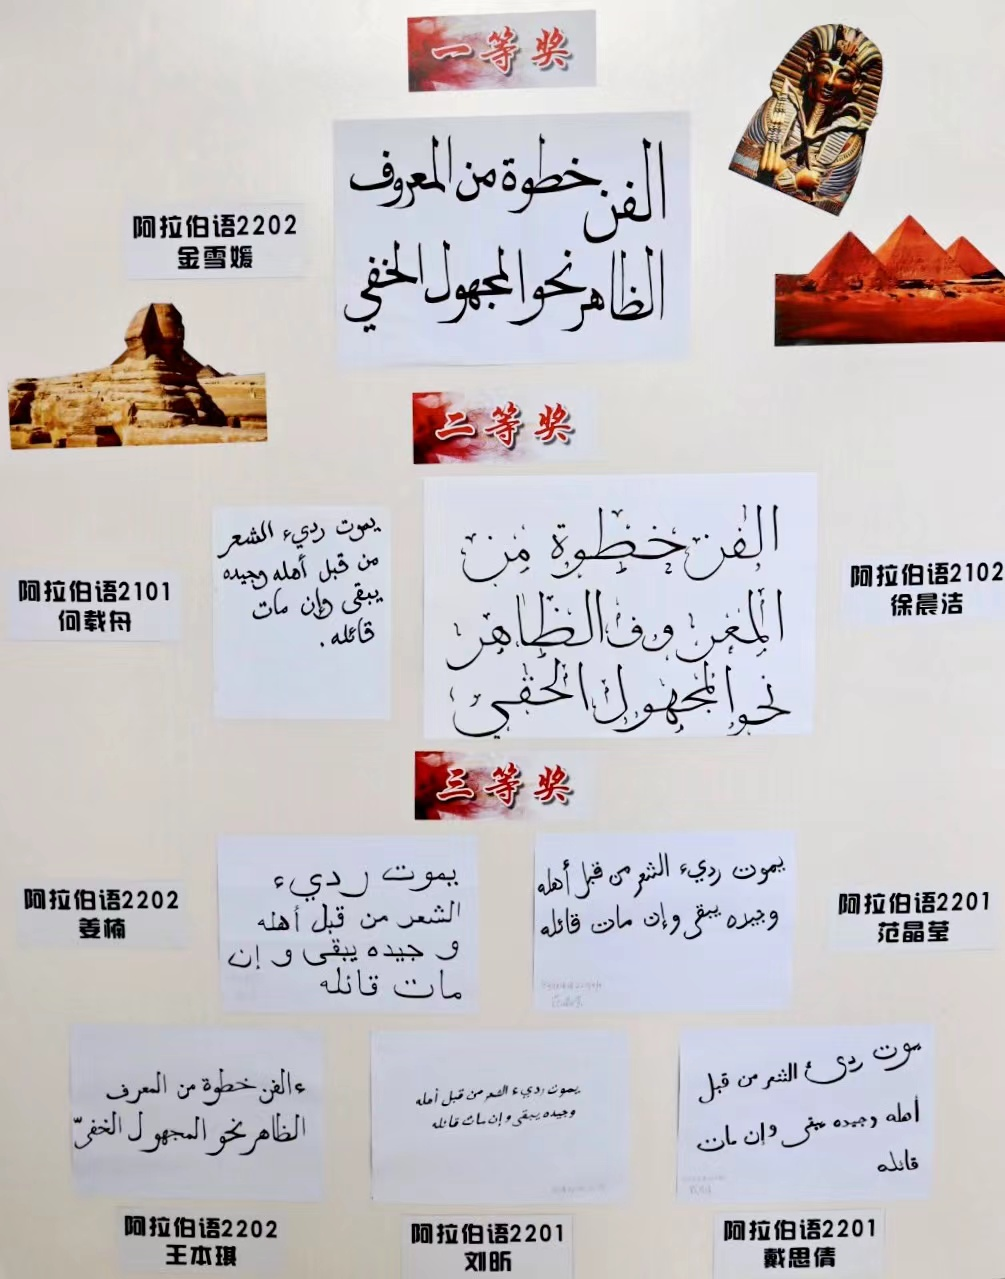 一等奖
الفن خطوة من المعروف
الظاهر نحو المجهول الخفي
阿拉伯语2202
金雪媛
二等奖
يموت رديء الشعر
من قبل أهله وجيده
يبقى وإن مات
قائله .
阿拉伯语2101
何载舟
الفن خطوة من
المعروف الظاهر
نحو المجهول الخفي
阿拉伯语2102
徐晨洁
三等奖
阿拉伯语2202
姜楠
يموت رديء
الشعر من قبل أهله
و جيده يبقى و إن
مات قائله
يموت رديء الشعر من قبل أهله
وجيده يبقى وإن مات قائله
阿拉伯语2201
范晶莹
ءالفن خطوة من المعرف
الظاهر نحو المجهول الخفيّ
阿拉伯语2202
王本琪
يموت رديء الشعر من قبل أهله
وجيده يبقى وإن مات قائله
阿拉伯语2201
刘昕
يموت ردئ الشعر من قبل
أهله وجيده يبقى وإن مات
قائله
阿拉伯语2201
戴思倩